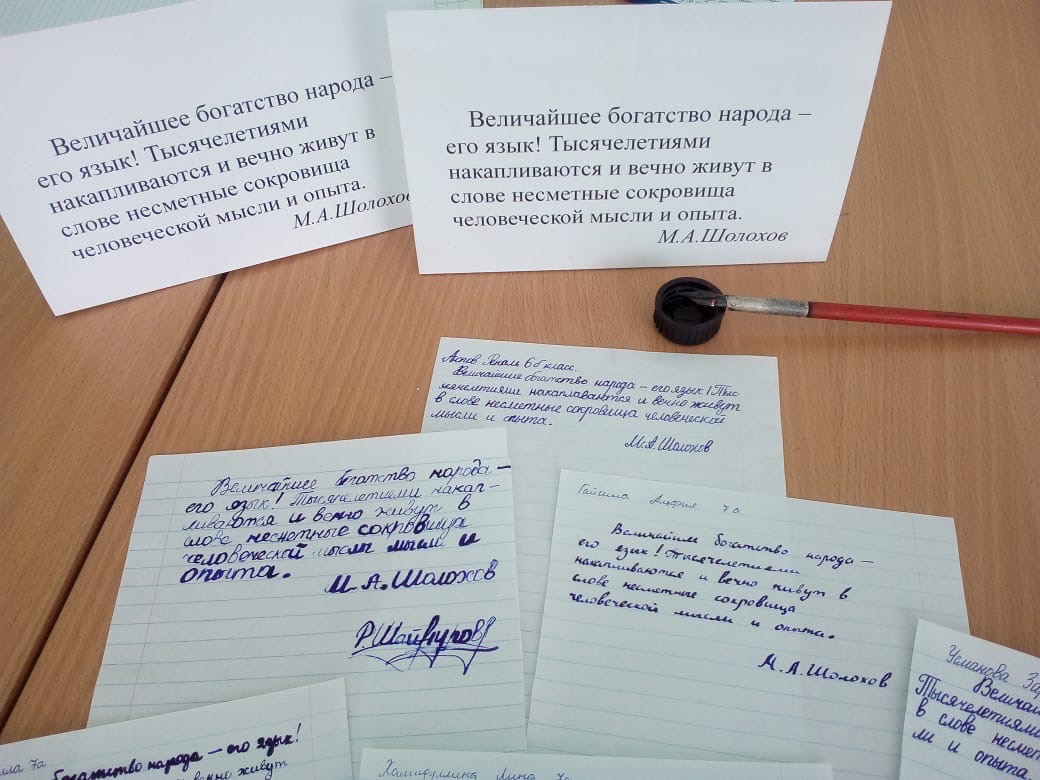 Величайшее богатство народа –
его язык! Тысячелетиями
накапливаются и вечно живут в
слове несметные сокровища
человеческой мысли и опыта.
М.А.Шолохов
Величайшее богатство народа –
его язык! Тысячелетиями
накапливаются и вечно живут в
слове несметные сокровища
человеческой мысли и опыта.
М.А.Шолохов
6б класс.
Величайшее богатство народа – его язык! Тыс
ячелетиями накапливаются и вечно живут
в слове несметные сокровища человеческой
мысли и опыта.
М.А.Шолохов
Величайшее богатство народа –
его язык! Тысячелетиями накап-
ливаются и вечно живут в
слове несметные сокровища
человеческой мыслы мысли и
опыта.
М.А.Шолохов
Гайсина Алфия 7а
Величайшее богатство народа –
его язык! Тысячелетиями
накапливаются и вечно живут в
слове несметные сокровища
человеческой мысли и опыта.
М.А.Шолохов
Усманова Зар
Величай
Тысячелетиями
в слове несмет
ли и опыта.
ила 7а
богатство народа – его язык!
вечно живут
Хамидуллина Лина 7а